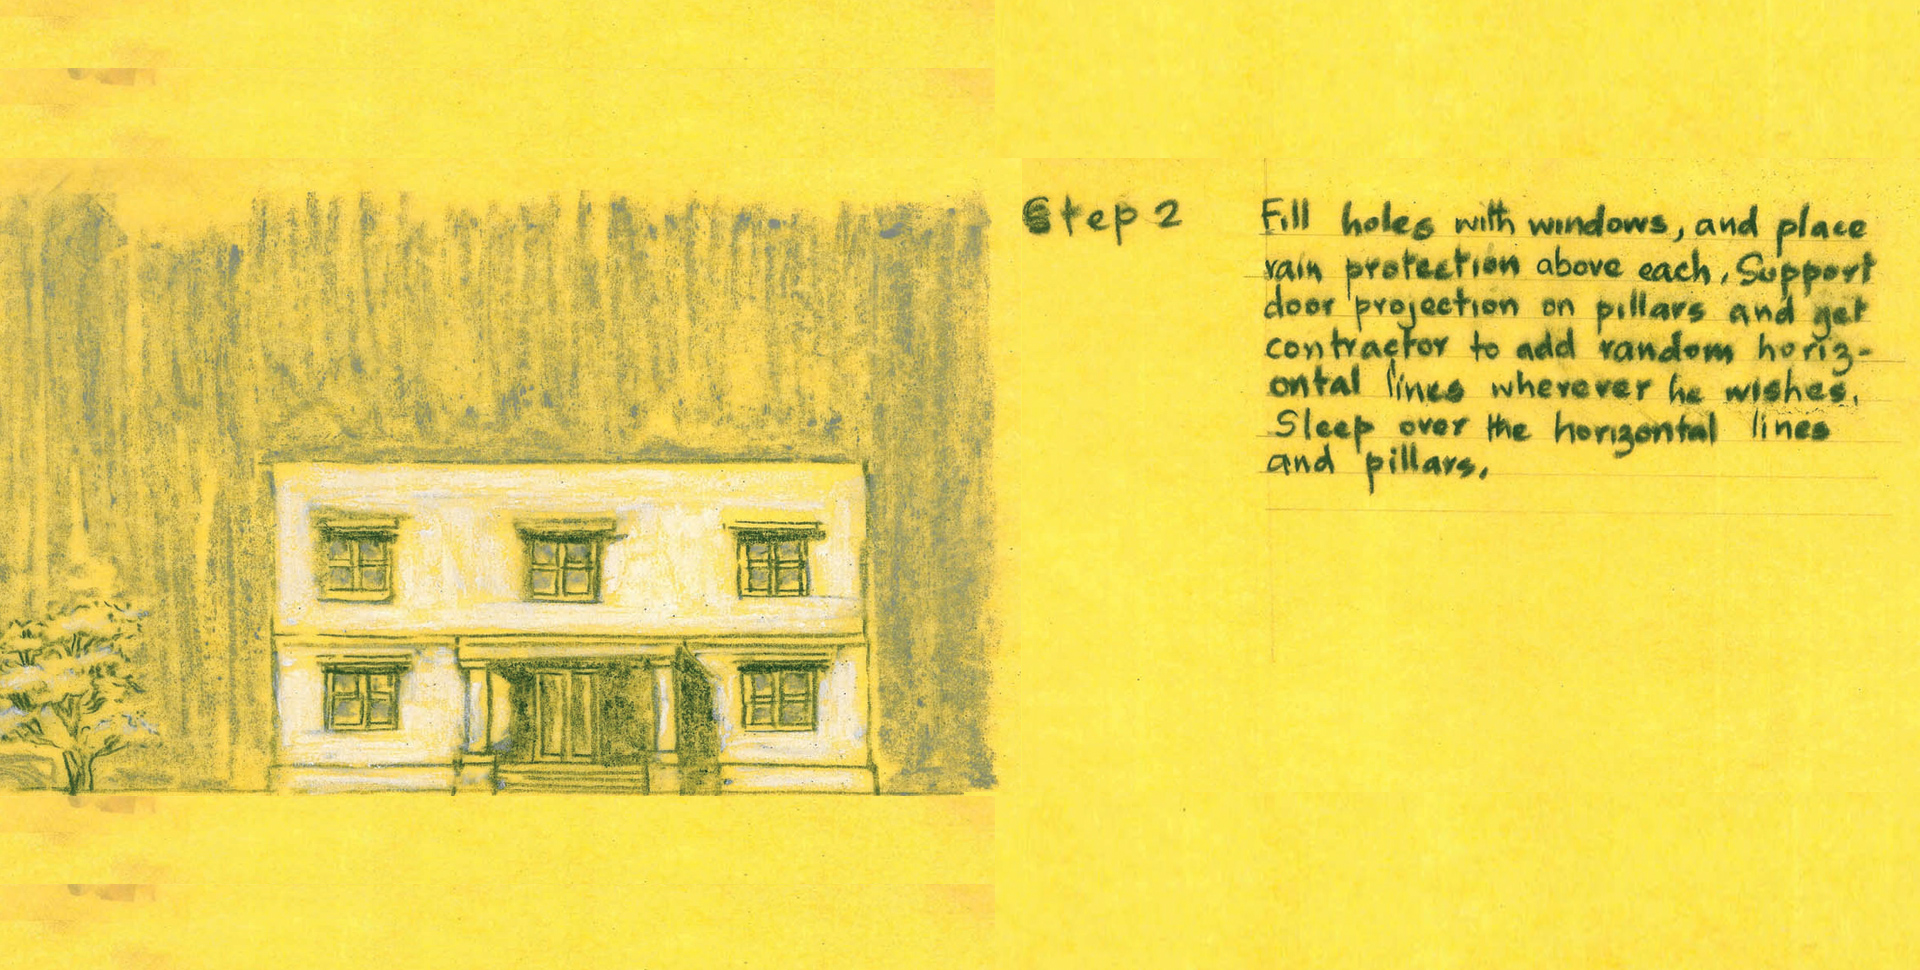 Step 2
Fill holes with windows, and place
rain protection above each. Support
door projection on pillars and get
contractor to add random horiz-
ontal lines wherever he wishes.
Sleep over the horizontal lines
and pillars.